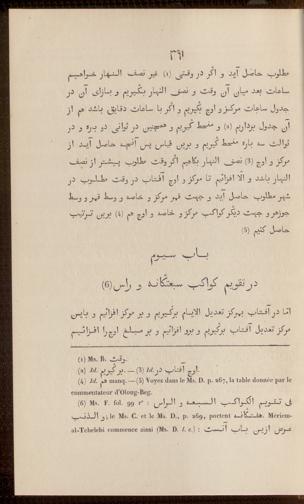 ٣٩١
مطلوب حاصل آید و اگر در وقتی (1) غیر نصف النهار خواهیم
ساعات بعد میان آن وقت و نصف النهار بگیریم و بازای آن در
جدول ساعات مرکز و اوج بگیریم و اگر با ساعات دقایق باشد هم از
آن جدول برداریم (2) و منحط گیریم و همچنین در ثوانی دو باره و در
ثوالث سه باره منحط گیریم و برین قیاس پس آنچه حاصل آید از
مرکز و اوج (3) نصف النهار بکاهیم اگر وقت مطلوب پیشتر از نصف
النهار باشد و الا افزائیم تا مرکز و اوج آفتاب در وقت مطلوب در
شهر مطلوب حاصل آید و جهت قمر مرکز و خاصه و وسط قمر و وسط
جوزهر و جهت دیگر کواکب مرکز و خاصه و اوج هم (4) برین ترتیب
حاصل کنیم (5)
باب سیوم
در تقویم کواکب سبعتگانه و راس (6)
اما در آفتاب بمرکز تعدیل الایام برگیریم و بر مرکز افزائیم و باین
مرکز تعدیل آفتاب برگیریم و برو افزائیم و مبلغ اوج را افزائیم
(1) Ms. B. وقت.
(2) Id. بر گیریم. — (3) Id. اوج آفتاب در.
(4) Id. هم manq. — (5) Voyez dans le Ms. D. p. 267, la table donnée par le
commentateur d'Oloug-Beg.
(6) Ms. F. fol. 99 r° : فی تقویم الکواکب السبعه و الراس
و الذنب; le Ms. C. et le Ms. D., p. 269, portent هفتگانه. Meriem-
al-Tchelebi commence ainsi (Ms. D. l. c.) : غرض ازین باب آنست